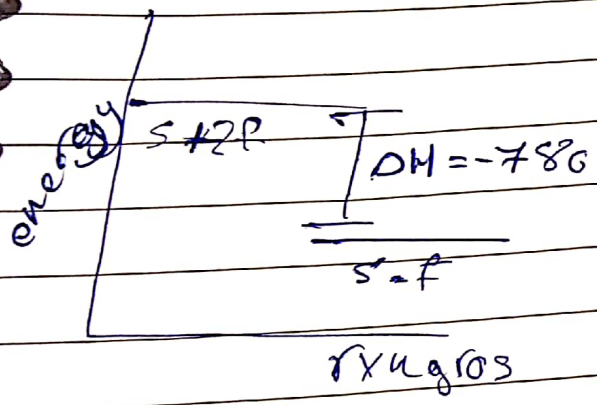 energy
S+2f
ΔH=-780
s-f
rxngros